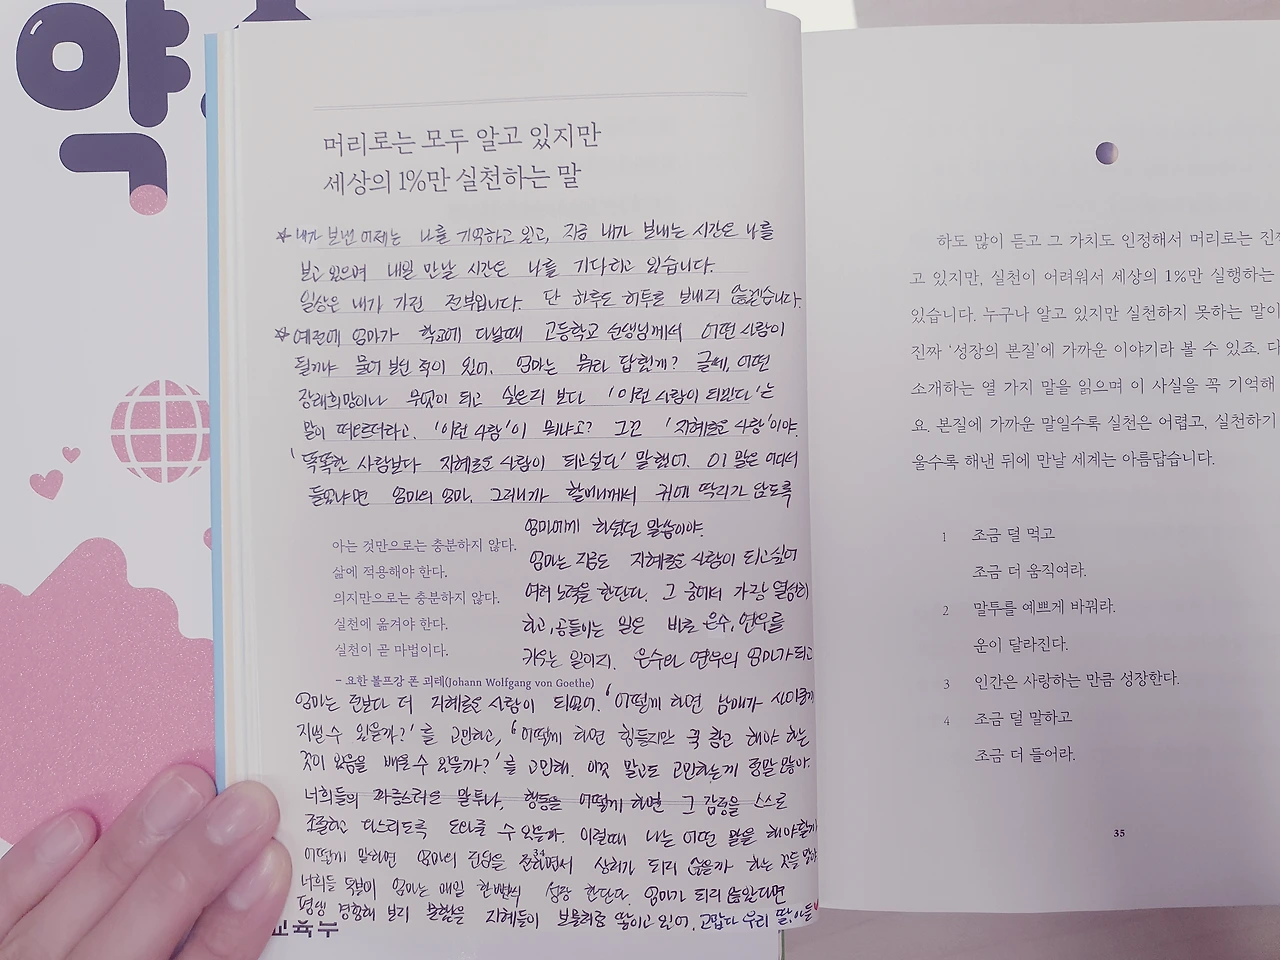 약
머리로는 모두 알고 있지만
세상의 1%만 실천하는 말
☆ 내가 보낸 어제는 나를 기억하고 있고, 지금 내가 보내는 시간은 나를
보고 있으며 내일 만날 시간은 나를 기다리고 있습니다.
일상은 내가 가진 전부입니다. 단 하루도 허투루 보내지 않겠습니다.
☆ 예전에 엄마가 학교에 다닐때 고등학교 선생님께서 어떤 사람이
될거냐 물어 보신 적이 있어. 엄마는 뭐라 답했게? 글쎄, 어떤
장래희망이나 무엇이 되고 싶은지 보다 '이런 사람이 되겠다'는
말이 떠오르더라고. '이런 사람'이 뭐냐고? 그건 '지혜로운 사람'이야.
'똑똑한 사람보다 지혜로운 사람이 되고싶다' 말했어. 이 말은 어디서
들었냐면 엄마의 엄마. 그러니까 할머니께서 귀에 딱지가 앉도록
엄마에게 하셨던 말씀이야.
아는 것만으로는 충분하지 않다.
삶에 적용해야 한다.
의지만으로는 충분하지 않다.
실천에 옮겨야 한다.
실천이 곧 마법이다.
– 요한 볼프강 폰 괴테(Johann Wolfgang von Goethe)
엄마는 지금도 지혜로운 사람이 되고싶어
여러 노력을 한단다. 그 중에서 가장 열심히
하고, 공들이는 일은 바로 은수, 연우를
키우는 일이지. 은수와 연우의 엄마가 되고
엄마는 전보다 더 지혜로운 사람이 되었어. '어떻게 하면 남매가 사이좋게
지낼 수 있을까?'를 고민하고, '어떻게 하면 힘들지만 꾹 참고 해야 하는
것이 있음을 배울 수 있을까?'를 고민해. 이것 말고도 고민하는게 정말 많아.
너희들의 짜증스러운 말투나, 행동을 어떻게 하면 그 감정을 스스로
조절하고 다스리도록 도와줄 수 있을까. 이럴때 나는 어떤 말을 해야할까
어떻게 말하면 엄마의 진심을 전하면서 상처가 되지 않을까 하는 것들 말야
너희들 덕분에 엄마는 매일 한뼘씩 성장 한단다. 엄마가 되지 않았다면
평생 경험해 보지 못했을 지혜들이 보물처럼 쌓이고 있어. 고맙다 우리 딸, 아들
교육부
하도 많이 듣고 그 가치도 인정해서 머리로는
고 있지만, 실천이 어려워서 세상의 1%만 실행하는
있습니다. 누구나 알고 있지만 실천하지 못하는 말이
진짜 '성장의 본질'에 가까운 이야기라 볼 수 있죠.
소개하는 열 가지 말을 읽으며 이 사실을 꼭 기억해
요. 본질에 가까운 말일수록 실천은 어렵고, 실천하기
울수록 해낸 뒤에 만날 세계는 아름답습니다.
1 조금 덜 먹고
조금 더 움직여라.
2 말투를 예쁘게 바꿔라.
운이 달라진다.
3 인간은 사랑하는 만큼 성장한다.
4 조금 덜 말하고
조금 더 들어라.
35